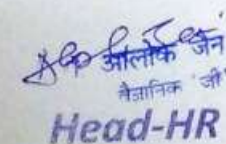 आलोक जैन
वैज्ञानिक 'जी'
Head-HR